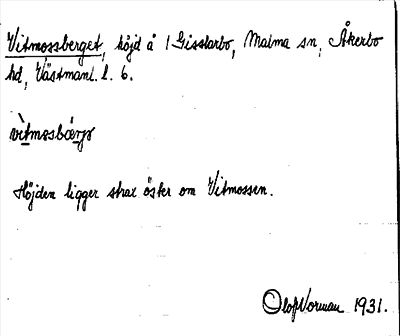 Vitmossberget, höjd å 1 Gisslarbo, Malma sn, Åkerbo
hd, Västmanl. l. 6.
vìtmosbærjə
Höjden ligger strax öster om Vitmossen.
Olof Norman 1931.